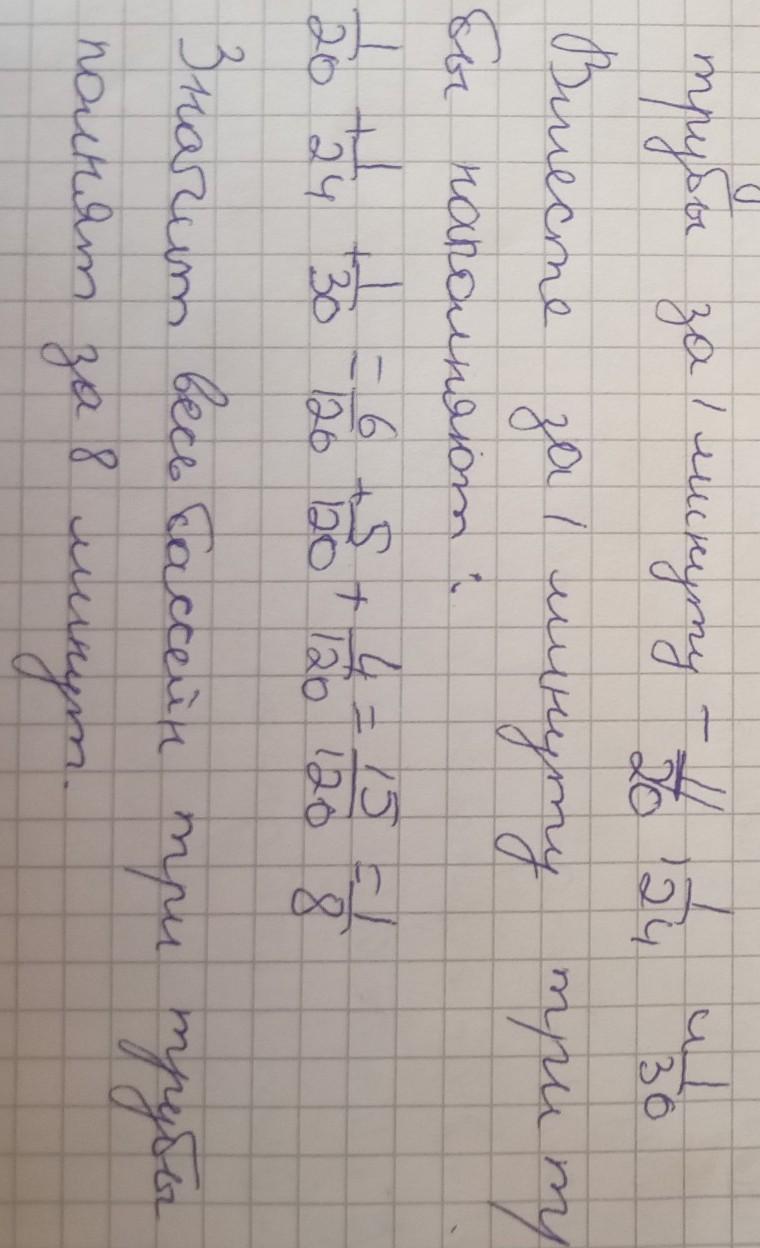 трубы за 1 минуту - 1/20, 1/24 и 1/30
Вместе за 1 минуту три тру
бы наполняют:
1/20 + 1/24 + 1/30 = 6/120 + 5/120 + 4/120 = 15/120 = 1/8
Значит весь бассейн три трубы
полнят за 8 минут.